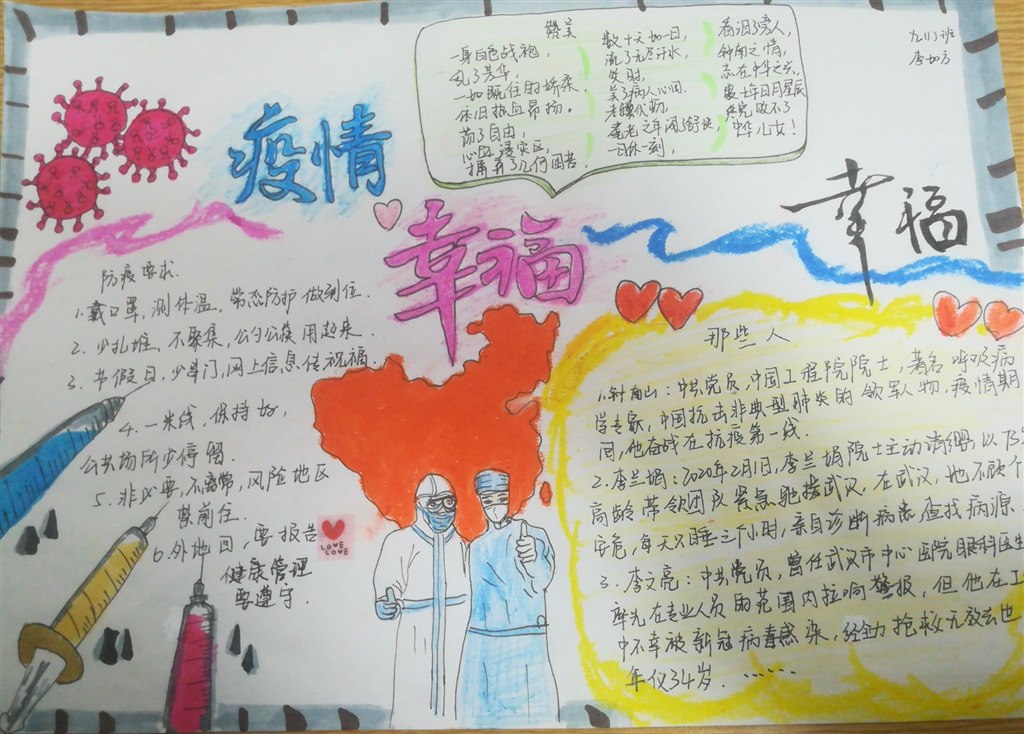 赞美
一身白色战袍，
乱了芳华，
一如既往的娇柔，
依旧热血昂扬。
荡了自由，
心血浸灾区，
摒弃了几何困苦，
数十天如一日，
流了无尽汗水，
笑时，
美了病人心田。
耄老之年
一日休一刻，
看泪了旁人，
钟南之情，
志在中华之
数十年日月星辰
中华儿女！
九(1)班
疫情
幸福
幸福
防疫要求.
1.戴口罩，测体温，常态防护做到位.
2. 少扎堆，不聚集，公勺公筷用起来.
3. 节假日，少串门，网上信息传祝福.
4. 一米线，保持好，
公共场所少停留.
5. 非必要，不离常，风险地区
禁前往.
6.外地回，要报告
健康管理
要遵守.
LOVE
LOVE
那些人
1.钟南山：中共党员，中国工程院院士，著名呼吸病
学专家，中国抗击非典型肺炎的领军人物，疫情期
间，他奋战在抗疫第一线.
2. 李兰娟：2020年2月1日，李兰娟院士主动请缨，以73
高龄带领团队紧急驰援武汉.在武汉，她不顾个
安危，每天只睡三个小时，亲自诊断病患查找病源.
3. 李文亮：中共党员，曾任武汉市中心医院眼科医生
率先在专业人员的范围内拉响警报，但他在工
中不幸被新冠病毒感染，经全力抢救无效去世
年仅34岁. ……